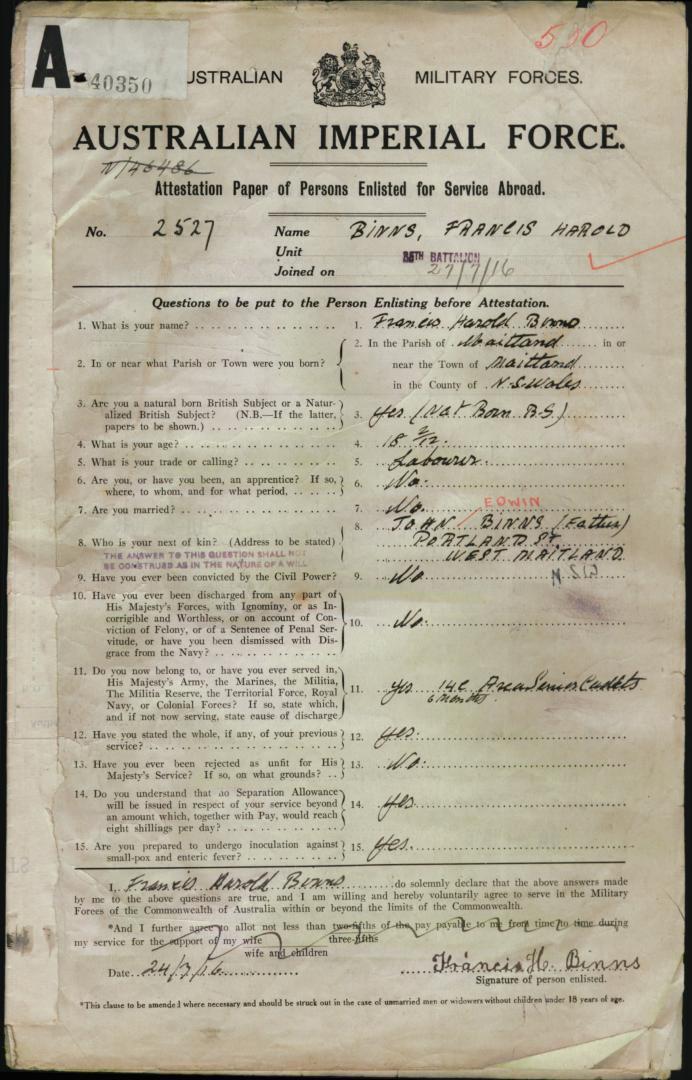 A-40350
530
AUSTRALIAN MILITARY FORCES.
AUSTRALIAN IMPERIAL FORCE.
N/46486
Attestation Paper of Persons Enlisted for Service Abroad.
No. 2527 Name BINNS, FRANCIS HAROLD
Unit 35TH BATTALION
Joined on 27/7/16
Questions to be put to the Person Enlisting before Attestation.
1. What is your name? 1. Francis Harold Binns
2. In or near what Parish or Town were you born? 2. In the Parish of Maitland in or
near the Town of Maitland
in the County of N.S.Wales
3. Are you a natural born British Subject or a Natur-
alized British Subject? (N.B.—If the latter, 3. Yes (Nat Born B.S)
papers to be shown.)
4. What is your age? 4. 18 2/12.
5. What is your trade or calling? 5. Labourer.
6. Are you, or have you been, an apprentice? If so,
where, to whom, and for what period, 6. No.
7. Are you married? 7. No.
EDWIN
8. Who is your next of kin? (Address to be stated) 8. JOHN / BINNS (Father)
PORTLAND ST
WEST MAITLAND
N.S.W
THE ANSWER TO THIS QUESTION SHALL NOT
BE CONSTRUED AS IN THE NATURE OF A WILL
9. Have you ever been convicted by the Civil Power? 9. No
10. Have you ever been discharged from any part of
His Majesty's Forces, with Ignominy, or as In-
corrigible and Worthless, or on account of Con-
viction of Felony, or of a Sentence of Penal Ser- 10. No.
vitude, or have you been Dismissed with Dis-
grace from the Navy?
11. Do you now belong to, or have you ever served in,
His Majesty's Army, the Marines, the Militia,
The Militia Reserve, the Territorial Force, Royal 11. Yes 14C Area Senior Cadets
Navy, or Colonial Forces? If so, state which, 6 Months.
and if not now serving, state cause of discharge
12. Have you stated the whole, if any, of your previous
service? 12. Yes.
13. Have you ever been rejected as unfit for His
Majesty's Service? If so, on what grounds? 13. No.
14. Do you understand that no Separation Allowance
will be issued in respect of your service beyond
an amount which, together with Pay, would reach 14. Yes
eight shillings per day?
15. Are you prepared to undergo inoculation against
small-pox and enteric fever? 15. Yes.
I, Francis Harold Binns do solemnly declare that the above answers made
by me to the above questions are true, and I am willing and hereby voluntarily agree to serve in the Military
Forces of the Commonwealth of Australia within or beyond the limits of the Commonwealth.
*And I further agree to allot not less than two-fifths of the pay payable to me from time to time during
three-fifths
my service for the support of my wife
wife and children
Date 24/7/16 Francis H. Binns
Signature of person enlisted.
*This clause to be amended where necessary and should be struck out in the case of unmarried men or widowers without children under 18 years of age.